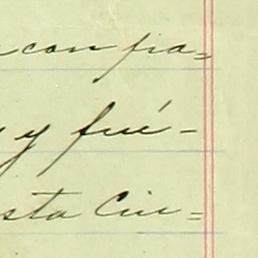 con fia=
y fué-
sta Ciu=